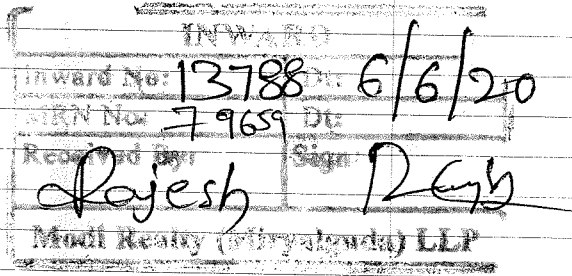 INWARD
Inward No: 13788 Dt: 6/6/20
MRN No: 79659 Dt:
Received By: Sign
Rajesh
Modi Realty (Miryalguda) LLP